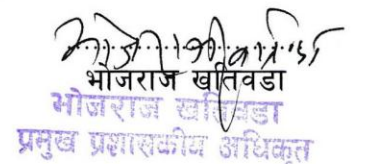 भोजराज खतिवडा
भोजराज खतिवडा
प्रमुख प्रशासकीय अधिकृत